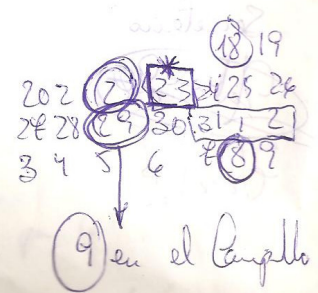 18 19
20 2 23 24 25 26
27 28 29 30 31 1 2
3 4 5 6 7 8 9
9 en el Campillo